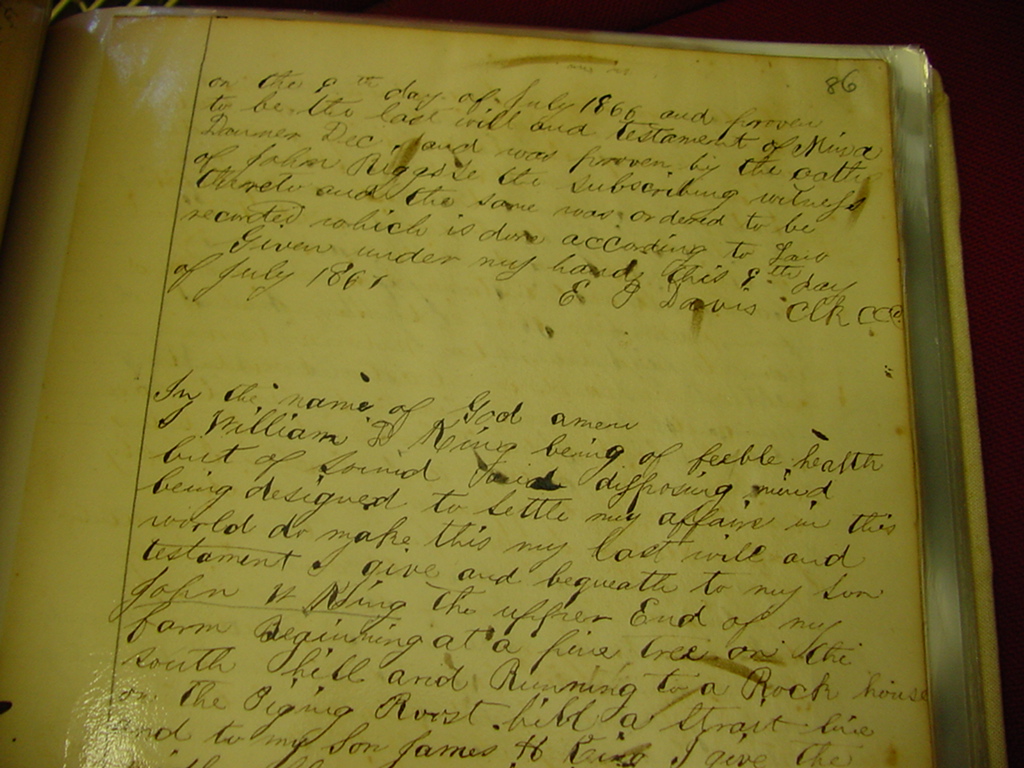 86
on the 9th day of July 1866 and proven
to be the last will and testament of Mina
Dec and was proven by the oath
of John Riggs & the Subscribing witness
thereto and the same was ordered to be
recorded which is done according to Law
Given under my hand this 9th day
of July 1861
E G Davis Clk CCC
In the name of God amen
I William D King being of feeble health
but of Sound and disposing mind
being desigued to Settle my affairs in this
world do make this my last will and
testament I give and bequeath to my Son
John K King the upper End of my
form Beginning at a pine tree on the
South hill and Running to a Rock house
on the Pigeon Roost hill a Strait line
and to my Son James H King I give the